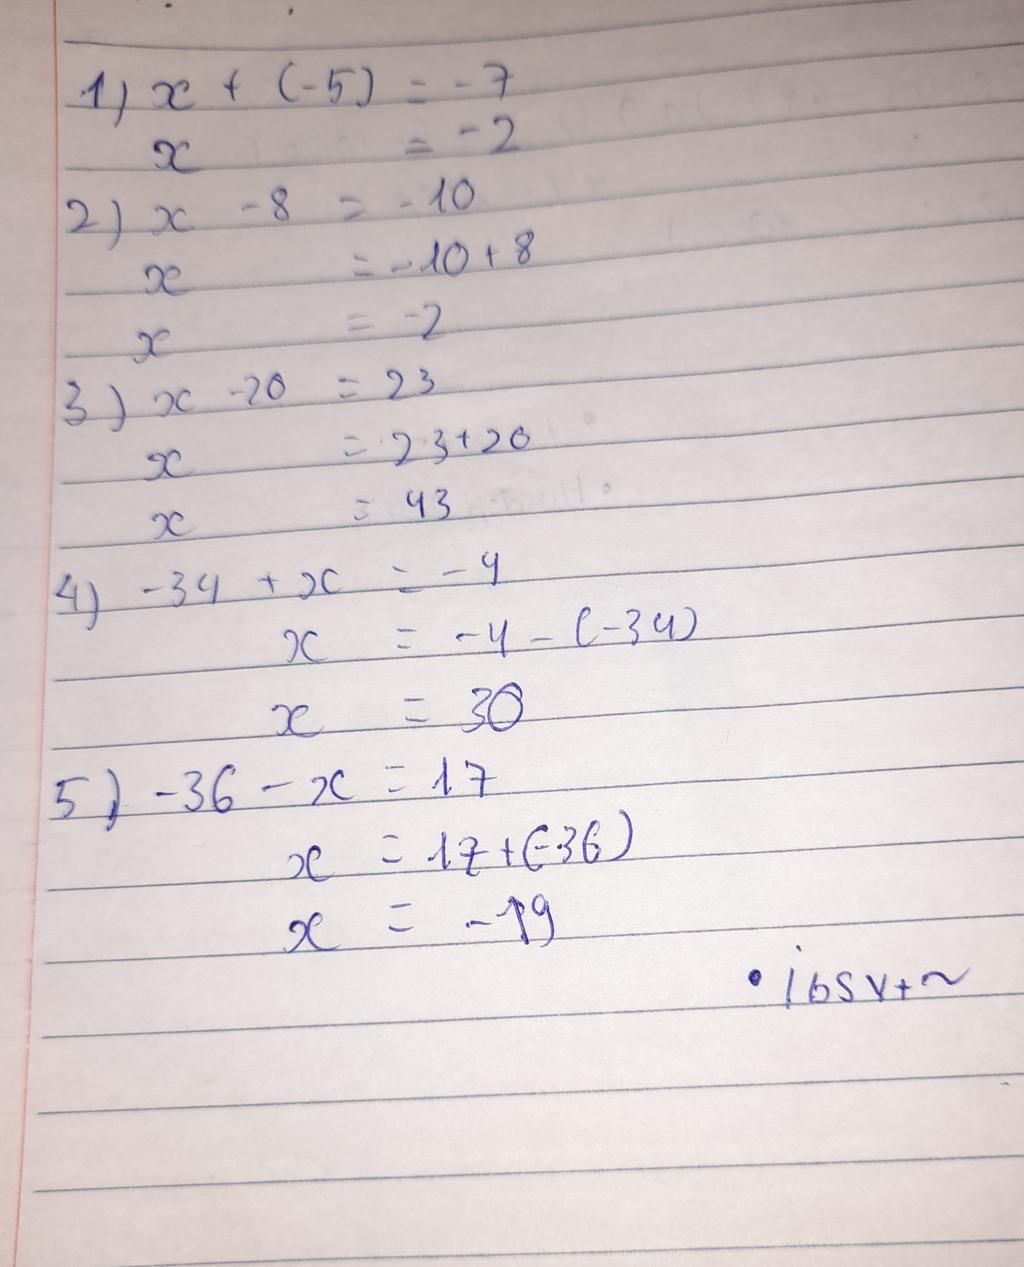 1) x + (-5) = -7
x = -2
2) x -8 = -10
x = -10+8
x = -2
3) x -20 = 23
x = 23+20
x = 43
4) -34 + x = -4
x = -4 - (-34)
x = 30
5) -36 - x = 17
x = 17+(-36)
x = -19